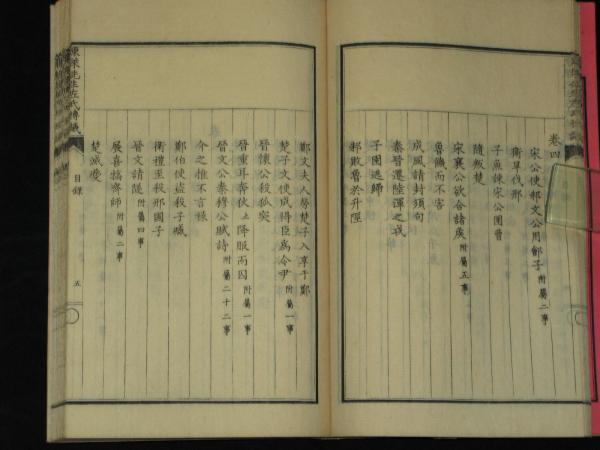 卷四
宋公使邾文公用鄫子 附屬二事
衛旱伐邢
子魚諫宋公圍曹
隨叛楚
宋襄公欲合諸侯 附屬五事
魯饑而不害
成風請封須句
秦晉遷陸渾之戎
子圉逃歸
邾敗魯於升陘
鄭文夫人勞楚子入享于鄭
楚子文使成得臣為令尹 附屬一事
晉懷公殺狐突
晉重耳奔狄止降服而囚 附屬一事
晉文公秦穆公賦詩 附屬二十二事
介之推不言祿
鄭伯使盜殺子臧
衛禮至殺邢國子
晉文請隧 附屬四事
展喜犒齊師 附屬二事
楚滅夔
東萊先生左氏博議
目錄
五